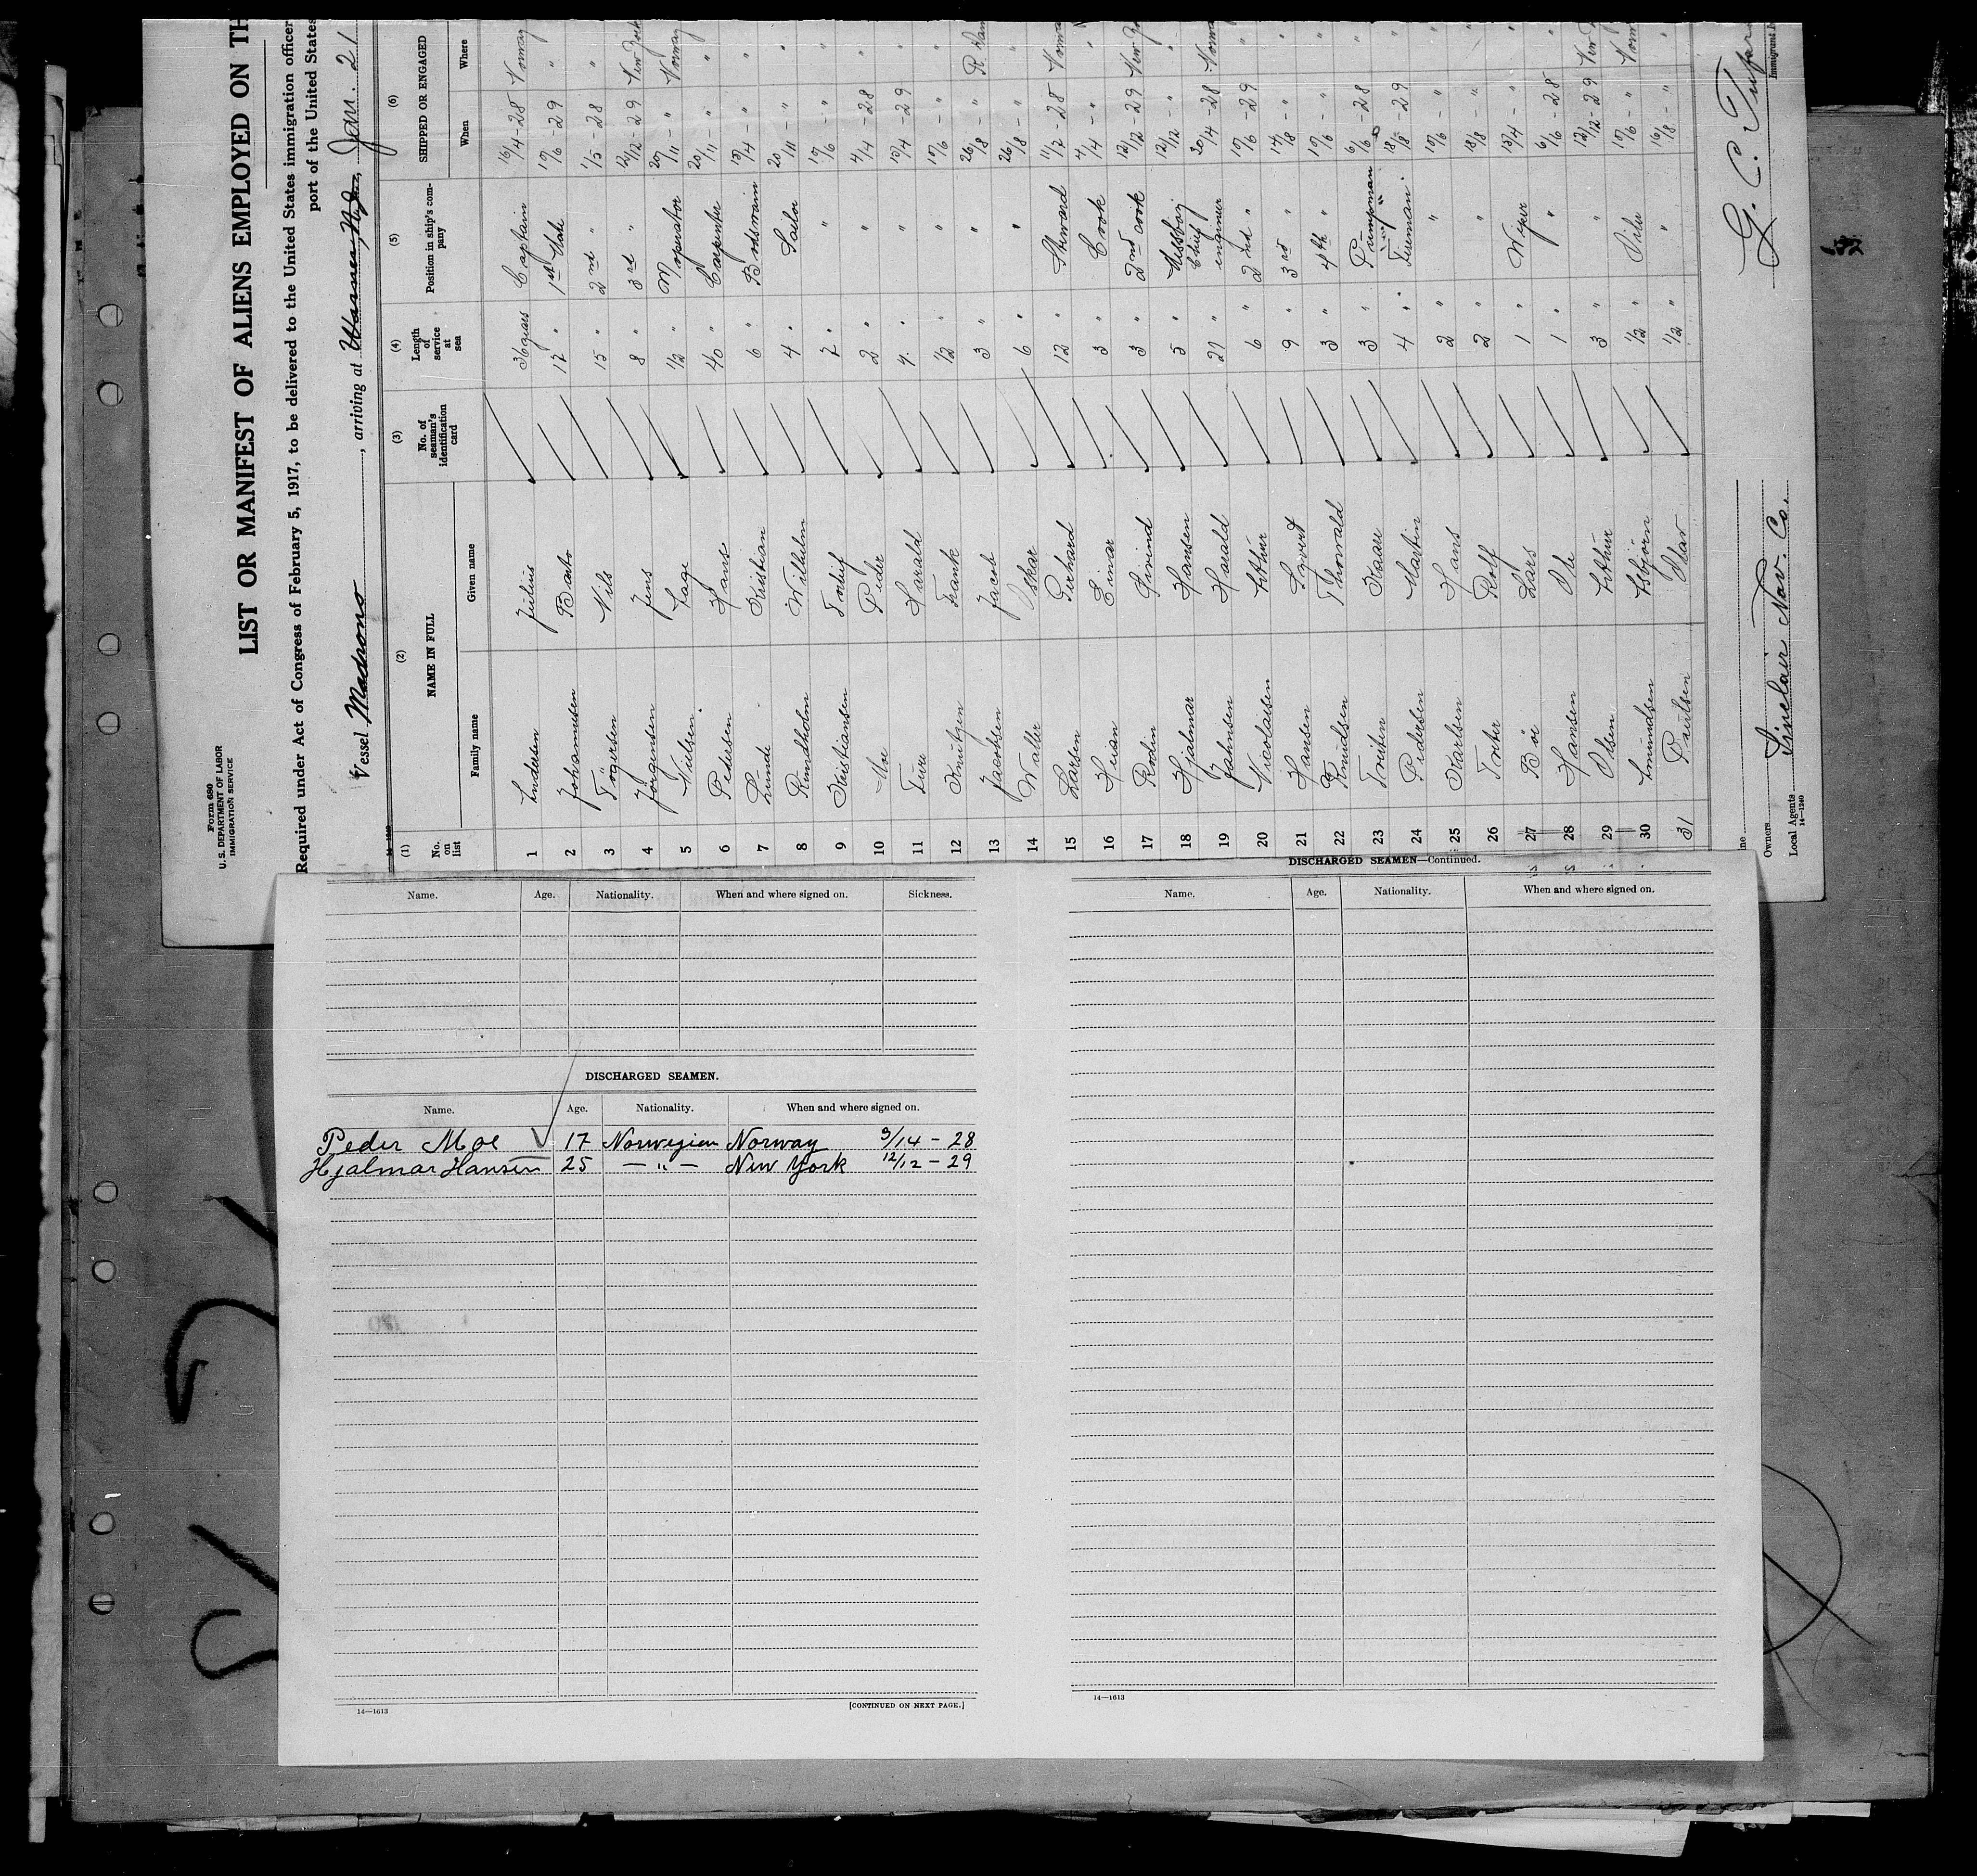 Form 680
U. S. DEPARTMENT OF LABOR
IMMIGRATION SERVICE
LIST OR MANIFEST OF ALIENS EMPLOYED ON TH
Required under Act of Congress of February 5, 1917, to be delivered to the United States immigration officer
port of the United States
Vessel Madrono, arriving at Jan. 21
(1) (2) (3) (4) (5) (6)
No. on list NAME IN FULL No. of seaman's identification card Length of service at sea Position in ship's company SHIPPED OR ENGAGED
Family name Given name When Where
1 Andersen Julius 36 years Captain 16/4-28 Norway
2 Johannesen Barto 17 " 1st Mate 10/6-29 "
3 Tögersen Nils 15 " 2nd " 1/5-28 "
4 Jörgensen Jens 8 " 3rd " 12/12-29 New York
5 Nielsen Aage 1/2 " W. operator 20/11-" Norway
6 Pedersen Hans 40 " Carpenter 20/11-" "
7 Lunde Kristian 6 " Bodswain 13/4-" "
8 Rundholm Wilhelm 4 " Sailor 20/11-" "
9 Kristiansen 2 " " 10/6-" "
10 Moe Peder 2 " " 4/4-28 "
11 Harald " " 13/4-29 "
12 Knutzen Frank 1/2 " " 10/6-" "
13 Jacobsen Jacob 3 " " 26/8-"
14 Waller Oskar 6 " " 26/8-" "
15 Larsen Gerhard 12 " Steward 11/2-28
16 Heian Einar 3 " Cook 4/4-" "
17 Rodin Eivind 3 " 2nd cook 12/12-29
18 Hjalmar Hansen 5 " Messboy 12/12-" "
19 Jahnsen Harald 27 " Chief engineer 20/4-28
20 Nicolaisen Arthur 6 " 2nd " 10/6-29 "
21 Hansen 9 " 3rd " 14/8-" "
22 Knudsen Thorvald 3 " 4th " 10/6-" "
23 Kaare 3 " Pumpman 6/6-28 "
24 Pedersen Martin 4 " Fireman 18/8-29 "
25 Karlsen Hans 2 " " 10/6-" "
26 Rolf 2 " " 18/8-" "
27 Böe Lars 1 " Wiper 13/4-" "
28 Hansen Ole 1 " " 6/6-28 "
29 Olsen Arthur 3 " " 12/12-29
30 Amundsen Asbjörn 1/2 " Oiler 10/6-"
31 Paulsen Olav 1/2 " " 16/8-" "
G. C.
Immigrant
Owners
Local Agents Sinclair Nav. Co.
14—1240
Name. Age. Nationality. When and where signed on. Sickness.
DISCHARGED SEAMEN.
Name. Age. Nationality. When and where signed on.
Peder Moe 17 Norwegian Norway 3/14 - 28
Hjalmar Hansen 25 — " — New York 12/12 - 29
[CONTINUED ON NEXT PAGE.]
14—1613
DISCHARGED SEAMEN—Continued.
Name. Age. Nationality. When and where signed on.
14—1613